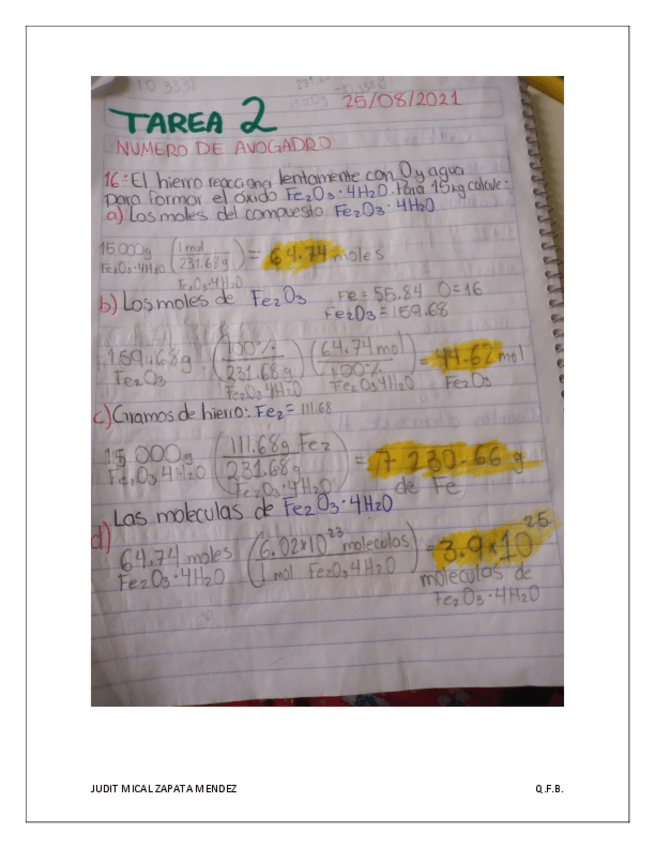 TAREA 2
25/08/2021
NUMERO DE AVOGADRO
16: El hierro reacciona lentamente con O y agua
para formar el óxido Fe2O3·4H2O. Para 15kg calcule:
a) Los moles del compuesto Fe2O3·4H2O
15000g Fe2O3·4H2O (1mol / 231.68g Fe2O3·4H2O) = 64.74 moles
b) Los moles de Fe2O3 Fe = 55.84 O=16
Fe2O3 = 159.68
159.68g Fe2O3 (100% / 231.68g Fe2O3 4H2O) (64.74 mol / 100% Fe2O3 4H2O) = 44.62 mol Fe2O3
c) Gramos de hierro: Fe2 = 111.68
15 000g Fe2O3 4H2O (111.68g Fe2 / 231.68g Fe2O3·4H2O) = 7 230.66 g de Fe
d) Las moleculas de Fe2O3·4H2O
64.74 moles Fe2O3·4H2O (6.02x10^23 moleculas / 1 mol Fe2O3 4H2O) = 3.9x10^25 moleculas de Fe2O3·4H2O
JUDIT MICAL ZAPATA MENDEZ Q.F.B.